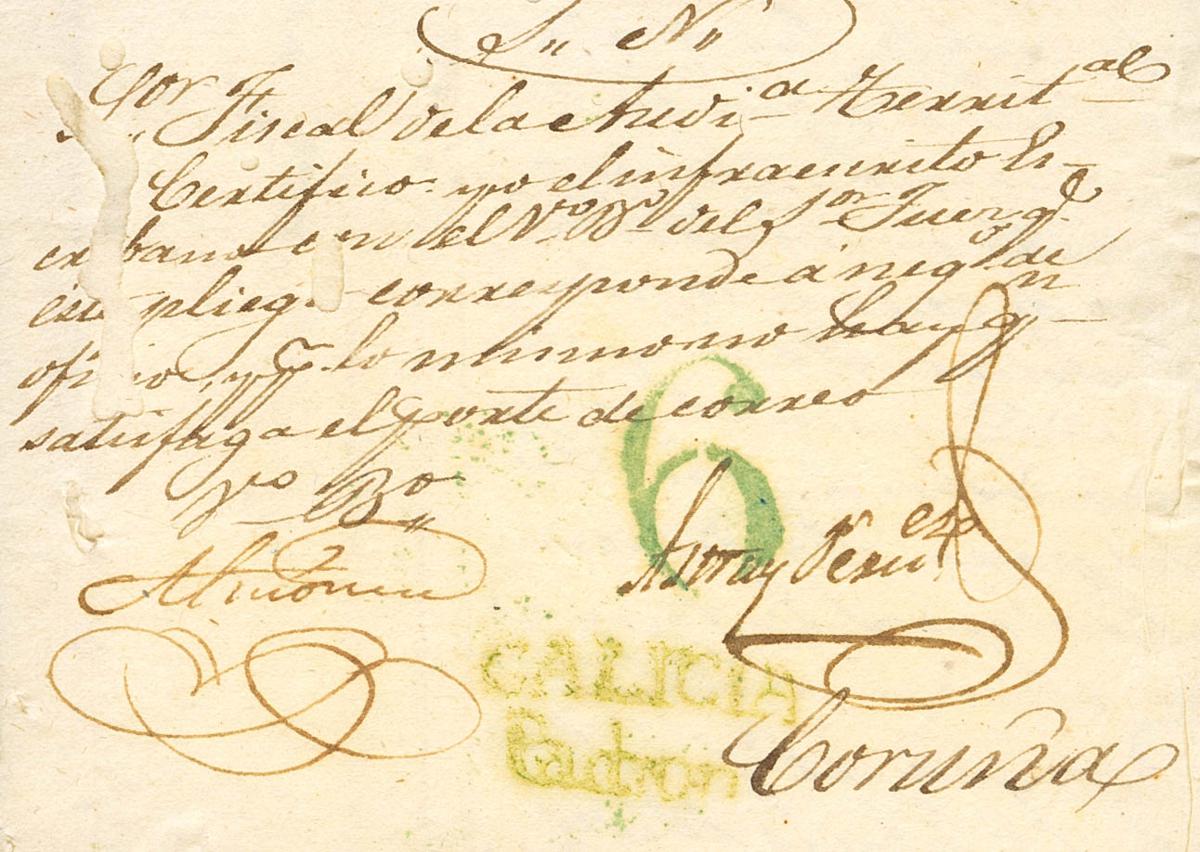 S.. N..
Sor Fiscal de la Audia Territal
Certifico yo el infraescrito Es-
cribano con el Vo Bo del Sor Juez qe
este pliego corresponde á negos de
oficio, y pr lo mismo no hay qn
satisfaga el porte de correo
Vo Bo
6
CALICIA
Padron
Coruña